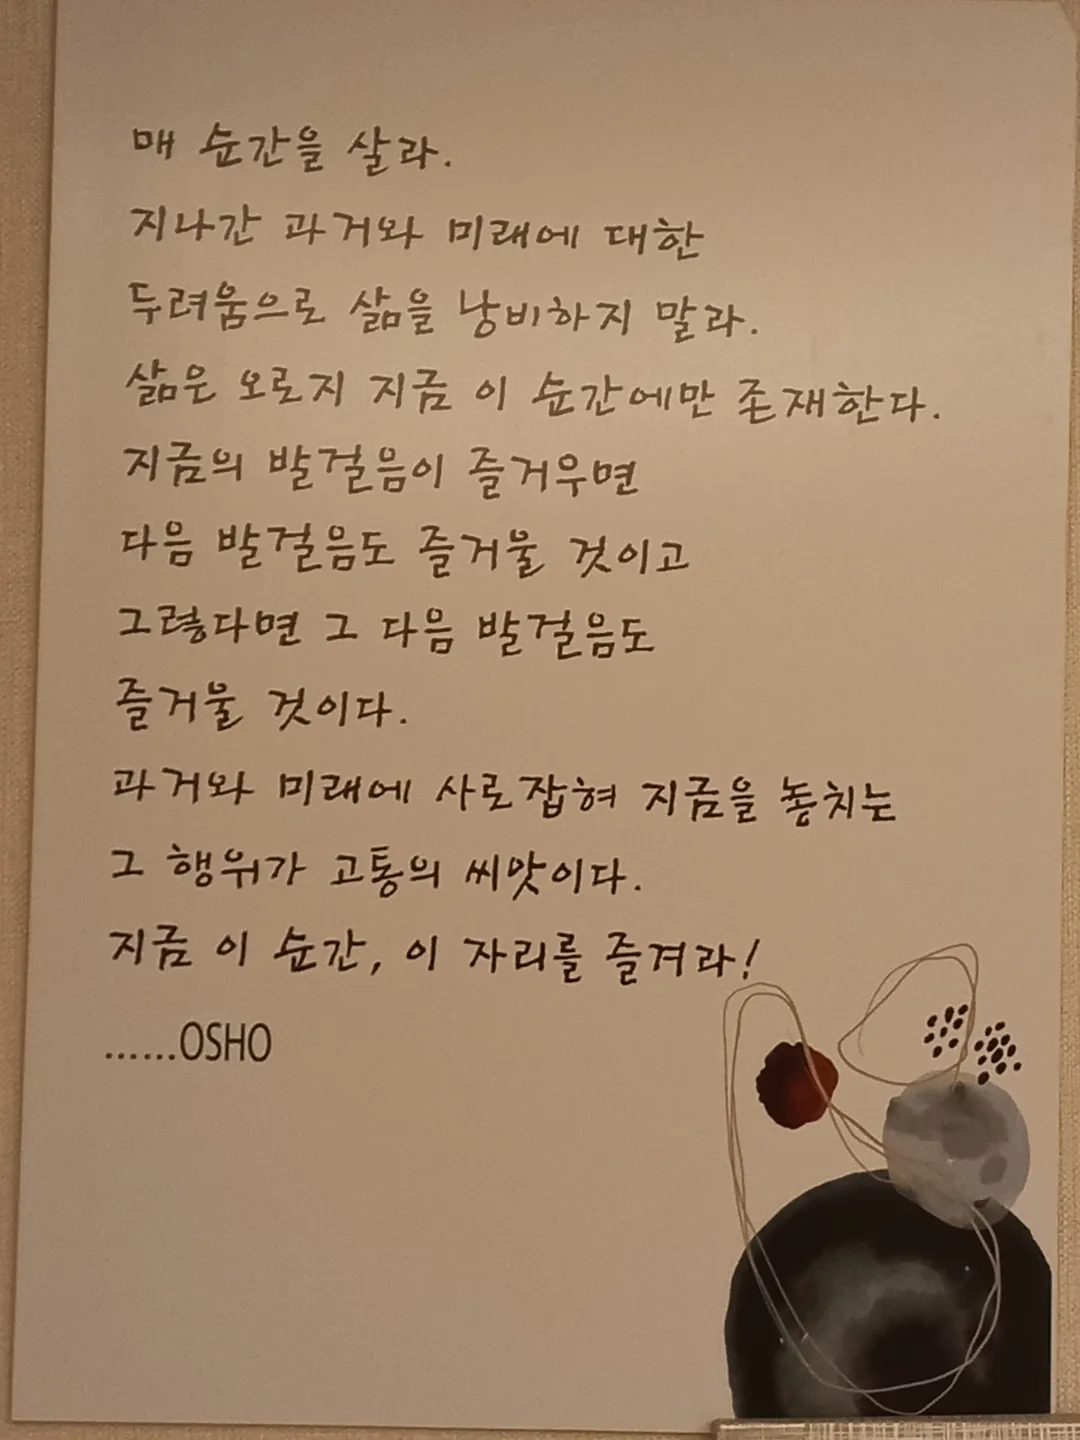 매 순간을 살라.
지나간 과거와 미래에 대한
두려움으로 삶을 낭비하지 말라.
삶은 오로지 지금 이 순간에만 존재한다.
지금의 발걸음이 즐거우면
다음 발걸음도 즐거울 것이고
그렇다면 그 다음 발걸음도
즐거울 것이다.
과거와 미래에 사로잡혀 지금을 놓치는
그 행위가 고통의 씨앗이다.
지금 이 순간, 이 자리를 즐겨라!
......OSHO